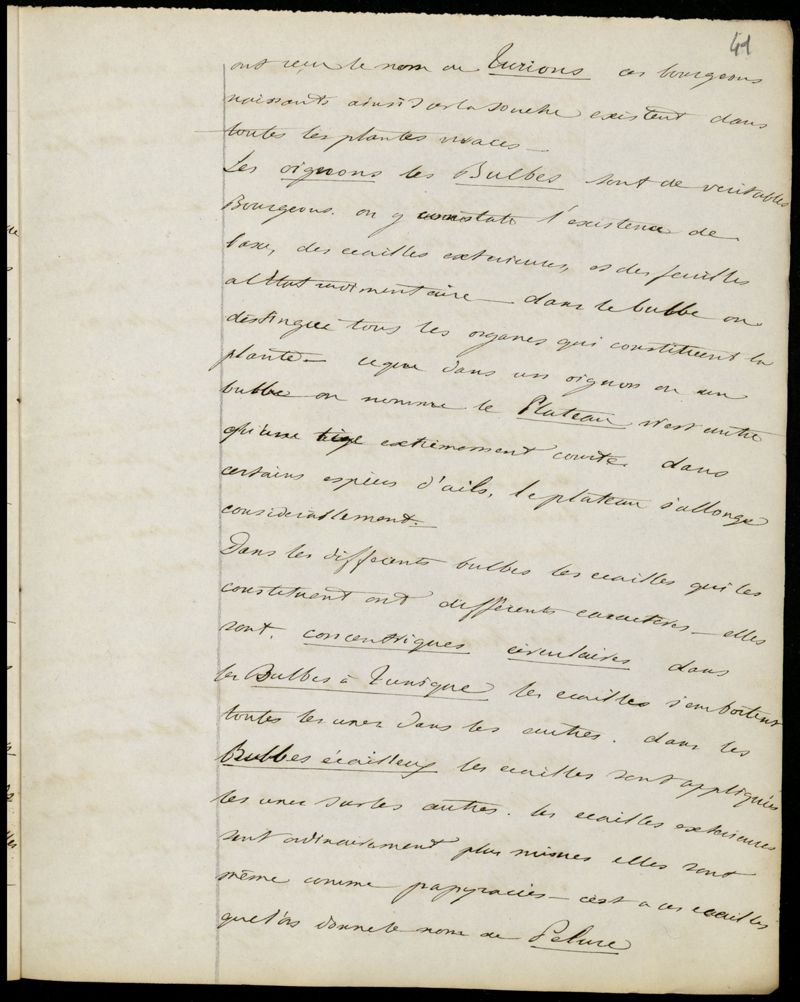 41
ont reçu le nom de Turions ces bourgeons
naissants ainsi sur la souche existent dans
toutes les plantes vivaces —
Les oignons les Bulbes sont de veritables
Bourgeons. on y constate l'existence de
l'axe, des ecailles exterieures, et des feuilles
a l'état rudimentaire — dans le bulbe on
distingue tous les organes qui constituent la
plante — ce que dans un oignon ou un
bulbe on nomme le Plateau n'est autre
qu'une tige extremement courte. dans
certains espèces d'ails, le plateau s'allonge
considerablement. —
Dans les differents bulbes les ecailles qui les
constituent ont différents caracteres — elles
sont. concentriques circulaires dans
les Bulbes à Tunique les ecailles s'emboitent
toutes les unes dans les autres. dans les
Bulbes écailleux les ecailles sont appliquées
les unes sur les autres. les ecailles exterieures
sont ordinairement plus minces elles sont
même comme papyracées — c'est a ces ecailles
que l'on donne le nom de Pelure